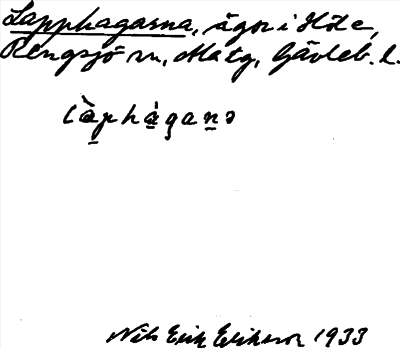 Lapphagarna, ägor i Höle,
Rengsjö sn, Matg, Gävleb. l.
làp̱há̱ga̱ṉə
Nils Erik Eriksson 1933